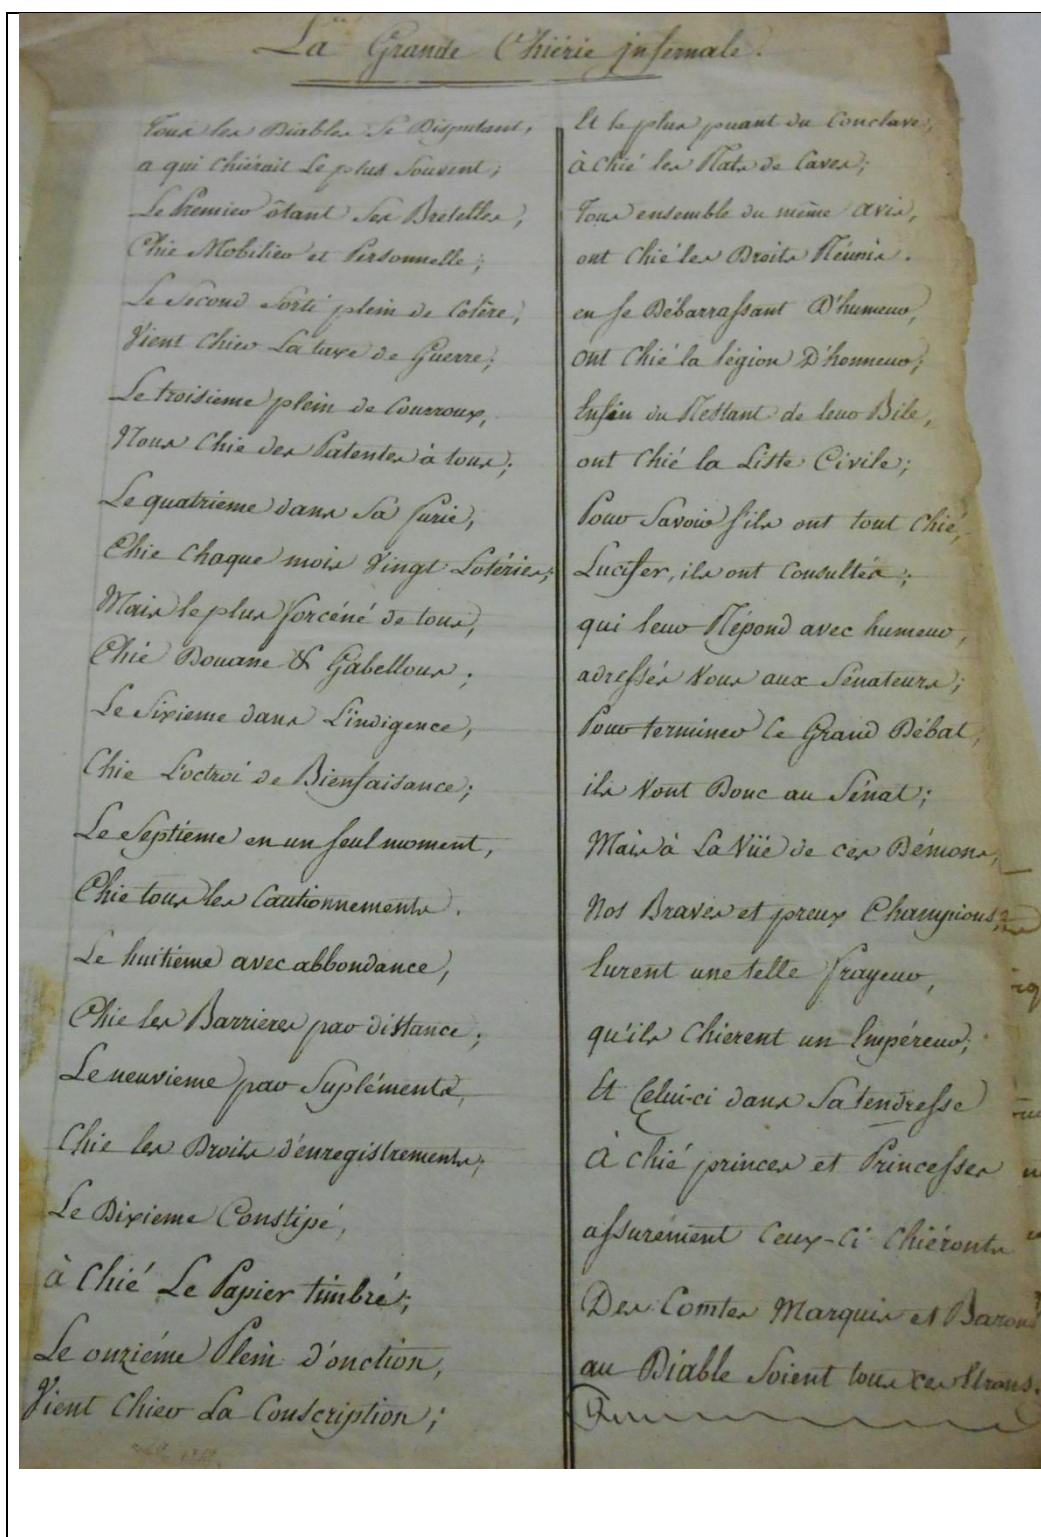 La Grande Chiérie infernale.
Tous les Diables se Disputant,
a qui chiérait Le plus souvent;
Le Premier ôtant Ses Bretelles,
Chie Mobilier et Personnelle;
Le Second Sorti plein de Colère,
Vient Chier La taxe de Guerre;
Le troisieme plein de Courroux,
Nous Chie des Patentes à tous;
Le quatrieme dans Sa furie,
Chie Chaque mois Vingt Lotéries;
Mais le plus forcéné de tous,
Chie Douane & Gabellous;
Le Sixieme dans L'indigence,
Chie L'octroi de Bienfaisance;
Le Septième en un seul moment,
Chie tous les Cautionnements.
Le huitième avec abbondance,
Chie les Barrieres par distance;
Le neuvieme par Supléments,
Chie les Droits d'enregistrements;
Le Dixieme Constipé,
à Chié Le Papier timbré;
Le onziéme Plein d'onction,
Vient Chier La Conscription;
Et le plus puant du Conclave,
à Chié les Rats de Caves;
Tous ensemble du même avis,
ont Chié les Droits Réunis.
en se Débarrassant D'humeur,
ont Chié la légion D'honneur;
Enfin du Restant de leur Bile,
ont Chié la Liste Civile;
Pour Savoir s'ils ont tout Chié,
Lucifer, ils ont Consultés;
qui leur Répond avec humeur,
adressés Vous aux Sénateurs;
Pour terminer Ce Grand Débat,
ils Vont Donc au Sénat;
Mais à La Vüe de ces Démons,
Nos Braves et preux Champions,
Eurent une telle frayeur,
qu'ils Chierent un Empéreur;
Et Celui-ci dans Sa tendresse
À Chié princes et Princesses
assurément Ceux-Ci Chiéronts
Des Comtes Marquis et Barons
au Diable Soient tous ces Etrons.